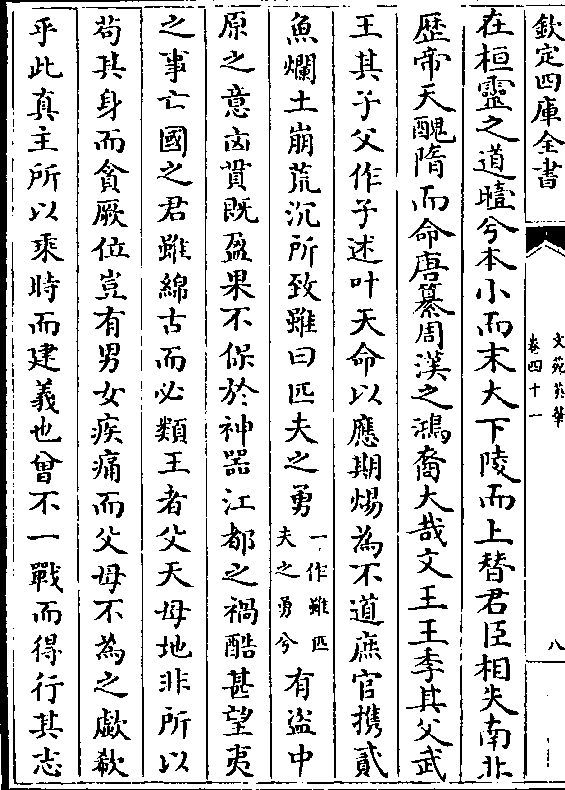 欽定四庫全書
文苑英華
卷四十一
八
在桓靈之道曀兮本小而末大下陵而上替君臣相失南北
歷帝天醜隋而命唐纂周漢之鴻裔大哉文王王季其父武
王其子父作子述叶天命以應期煬為不道庶官携貳
魚爛土崩荒沉所致雖曰匹夫之勇
一作雖匹
夫之勇兮
有盗中
原之意卤貫既盈果不保於神器江都之禍酷甚望夷
之事亡國之君雖綿古而必類王者父天母地非所以
苟其身而貪厥位豈有男女疾痛而父母不為之歔欷
乎此真主所以乘時而建義也曾不一戰而得行其志